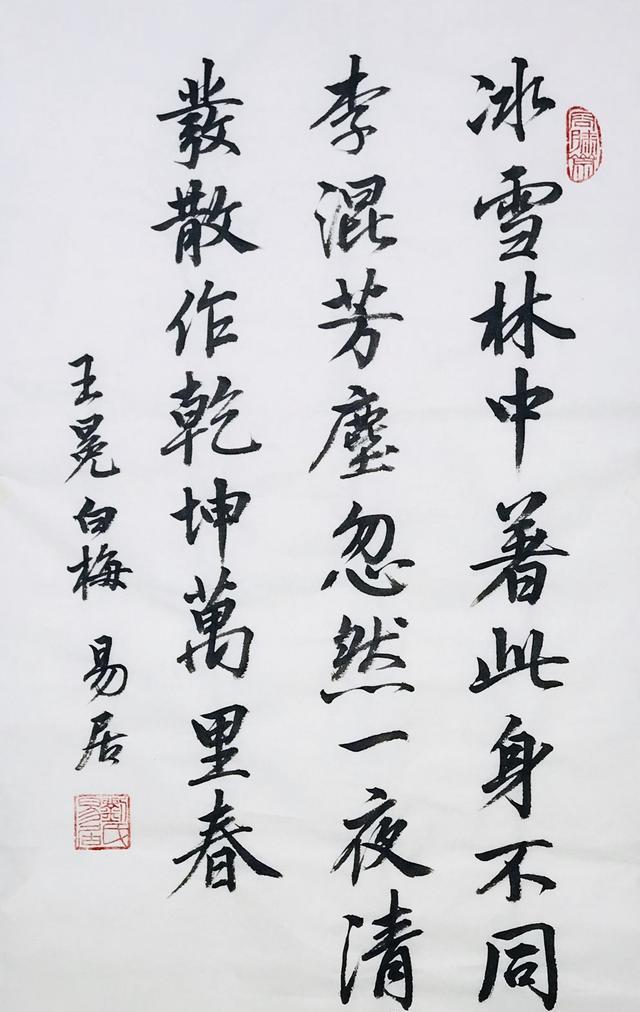 冰雪林中著此身不同
李混芳塵忽然一夜清
發散作乾坤萬里春
王冕白梅 易居
劉氏易居